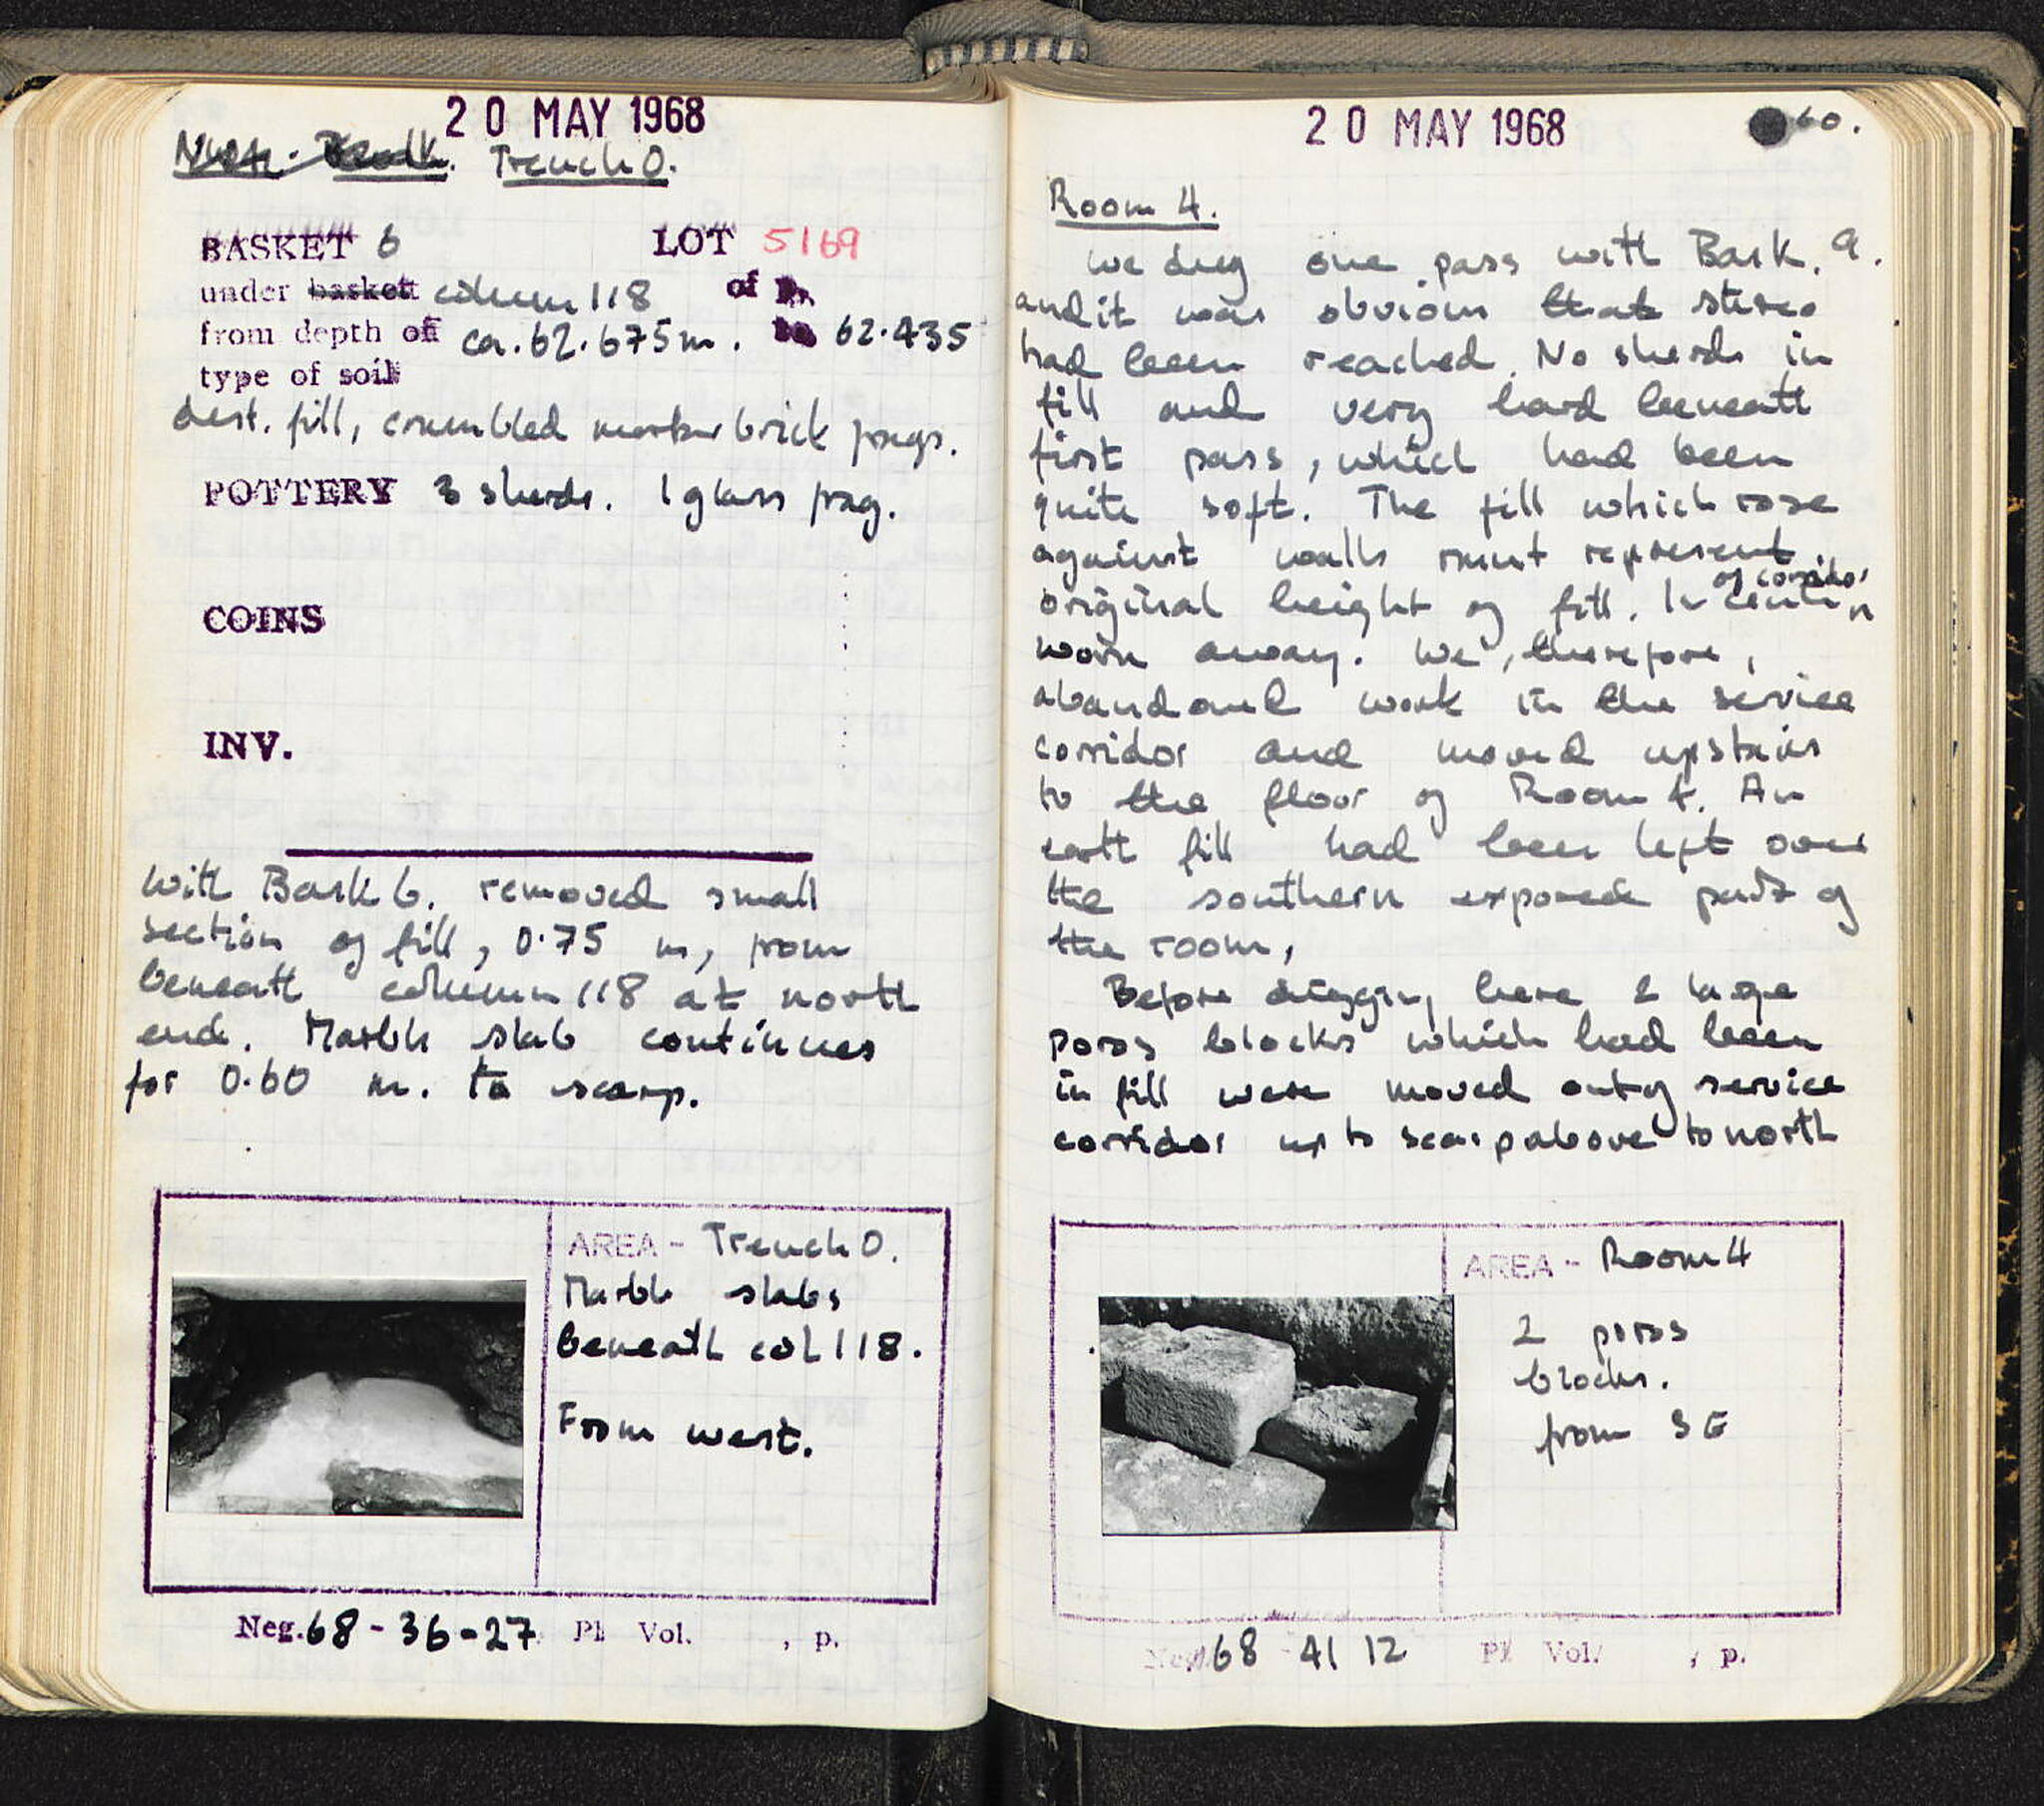 20 MAY 1968
Trench O.
BASKET 6 LOT 5169
under baskett column 118 of
from depth off ca. 62.675m. to 62.435
type of soil
dest. fill, crumbled mortar brick frags.
POTTERY 3 sherds. 1 glass frag.
COINS
INV.
With Bask 6. removed small
section of fill, 0.75 m, from
beneath column 118 at north
end. Marble slab continues
for 0.60 m. to scarp.
AREA - Trench O.
Marble slabs
beneath col 118.
From west.
Neg. 68-36-27 Pl Vol. , p.
20 MAY 1968 60.
Room 4.
We dug one pass with Bask. 9.
and it was obvious that stereo
had been reached. No sherds in
fill and very hard beneath
first pass, which had been
quite soft. The fill which rose
against walls must represent
original height of fill. In center of corridor
worn away. We, therefore,
abandoned work in the service
corridor and moved upstairs
to the floor of Room 4. An
earth fill had been left over
the southern exposed part of
the room,
Before digging here 2 large
poros blocks which had been
in fill were moved out of service
corridor up to scarp above to north
AREA - Room 4
2 poros
blocks.
from SE
Neg. 68 - 41 12 Pl Vol. , p.